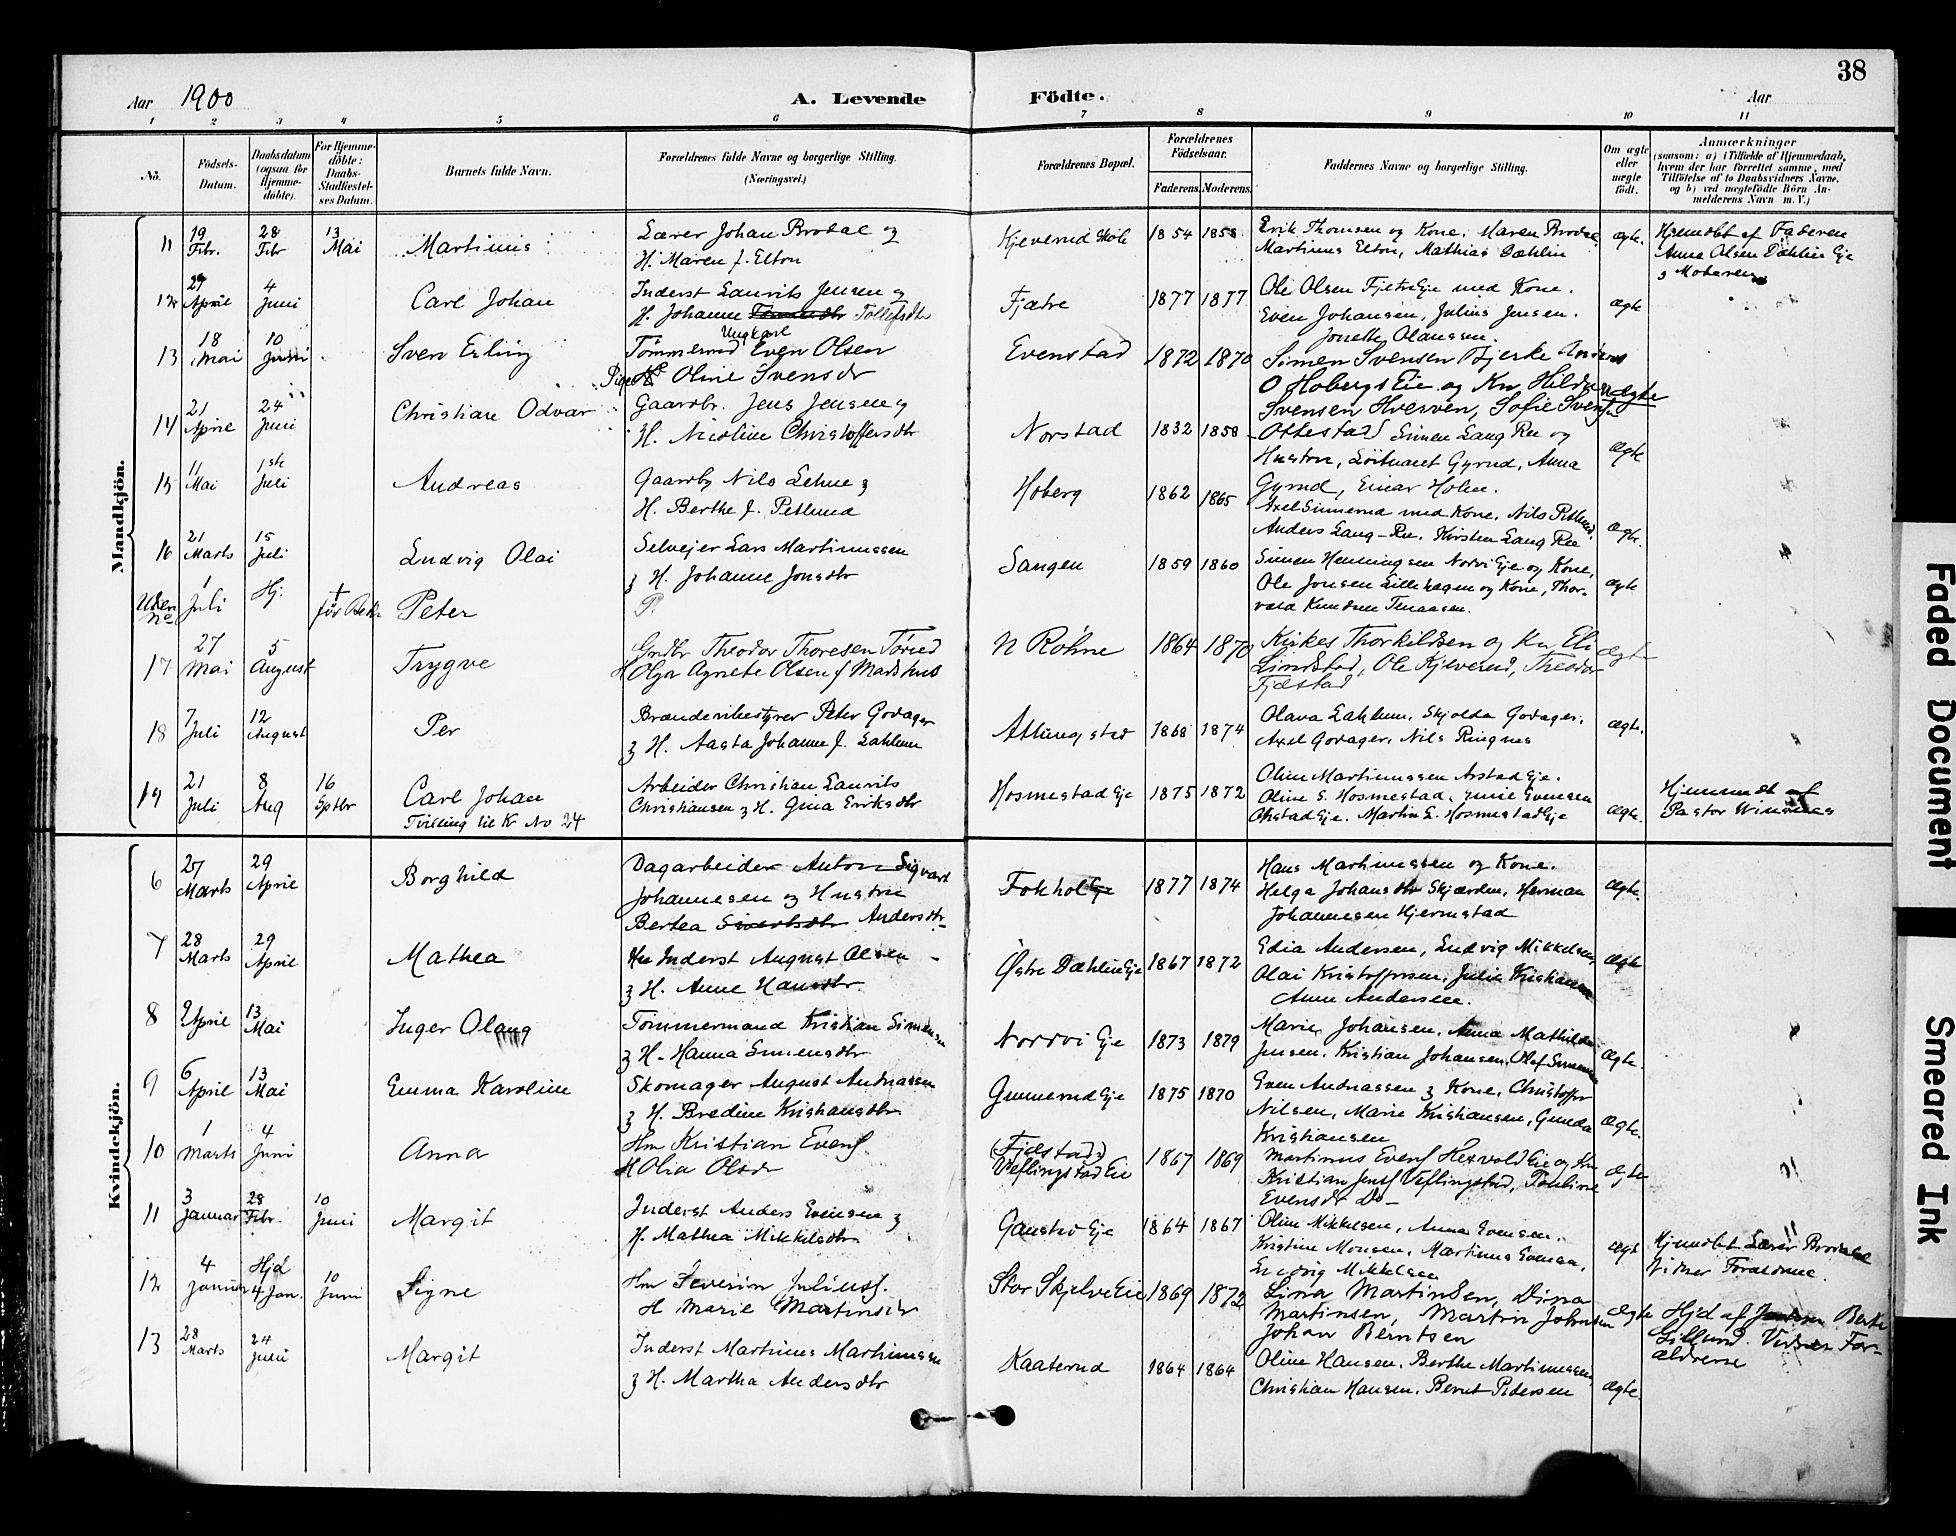 38
Aar 1900
A. Levende Födte.
Aar
1 2 3 4 5 6 7 8 9 10 11
No.
Födsels-Datum.
Daabsdatum (ogsaa for Hjemme-döbte).
For Hjemme-döbte: Daabs-Stadfæstel-ses Datum.
Barnets fulde Navn.
Forældrenes fulde Navne og borgerlige Stilling.
(Næringsvei.)
Forældrenes Bopæl.
Forældrenes Födselsaar.
Faderens. Moderens.
Faddernes Navne og borgerlige Stilling.
Om ægte eller uægte födt.
Anmærkninger
(saasom: a) i Tilfælde af Hjemmedaab, hvem der har forrettet samme, med Tilföielse af to Daabsvidners Navne, og b) ved uægtefödte Börn An-melderens Navn m. V.)
Mandkjön.
11 19 Febr. 28 Febr 13 Mai Martinus
Lærer Johan Brodal og
H. Maren f. Elton
Kjeverud Skole 1854 1858
Erik Thomsen og Kone. Maren Brodal
Martinus Elton, Mathias Dæhlin
ægte.
Hjemdbt af Faderen
Anna Olsen Dæhlin Eje
& Moderen
12 29 April 4 Juni Carl Johan
Inderst Laurits Jensen og
H. Johanne Tollefsdtr
Fjætre 1877 1877
Ole Olsen Fjetre Eje med Kone.
Even Johansen, Julius Jensen.
Jonette Olaussen.
ægte
13 18 Mai 10 Juni Sven Erling
Ungkarl
Tømmermd Even Olsen
Pige Oline Svensdr
Evenstad 1872 1870
Simen Svensen Bjerke Anders
O Hobergs Eie og Kn Hilda
Svensen Hverven, Sofie Svens.
uægte
14 21 April 24 Juni Christian Odvar
Gaardbr. Jens Jensen og
H. Nicoline Christoffersdtr
Norstad 1832 1858
Ottestad Simen Lang Ree og
Hustru, Löitnant Gyrud, Anna
Gyrud, Einar Holm.
ægte
15 11 Mai 1ste Juli Andreas
Gaardbr Nils Lehne &
H. Berthe f. Petlund
Hoberg 1862 1865
Axel Sinnerud med Kone. Nils Petlund,
Anders Lang-Ree. Kirsten Lang Ree
ægte.
16 21 Marts 15 Juli Ludvig Olai
Selvejer Lars Martinussen
& H. Johanne Jonsdtr
Sangen 1859 1860
Simen Henningsen Nordvi Eje og Kone,
Ole Jonsen Lillehagen og Kone, Thor-
vald Knudsen Tenaasen.
ægte
Uden No 1 Juli Hj. † før Bekr Peter
P.
17 27 Mai 5 August Trygve
Grdbr Theodor Thoresen Töried
H Olga Agnete Olsen f Madshus
N Röhne 1864 1870
Kirkes Thorkildsen og Kn, Eli
Lindstad, Ole Kjeverud, Theodor
Fjæstad
ægte
18 7 Juli 12 August Per
Brænderibestyrer Peter Godager
& H. Aasta Johanne f. Lahlum
Atlungstad 1868 1874
Olava Lahlum, Skjolda Godager,
Axel Godager, Nils Ringnes
ægte.
19 21 Juli 8 Aug 16 Sptbr Carl Johan
Tvilling til K No 24
Arbeider Christian Laurits
Christiansen & H. Gina Eriksdtr
Hosmestad Eje 1875 1872
Oline Martinussen Arstad Eje.
Oline E. Hosmestad, Evensen
Ohstad Eje. Martin E. Hosmestad Eje
ægte.
Hjemmedt af
Pastor Winsnes
Kvindekjön.
6 27 Marts 29 April Borghild
Dagarbeider Anton Sigvart
Johannesen og Hustru
Bertea Sivertsdtr Andersdtr.
Fokhol Eje 1877 1874
Hans Martinussen og Kone.
Helga Johansdtr Skjærden. Herman
Johannesen Hjermstad
ægte.
7 28 Marts 29 April Mathea
Inderst August Olsen
& H. Anne Hansdtr.
Østre Dæhlin Eje 1867 1872
Edia Andersen, Ludvig Mikkelsen,
Olai Kristoffersen, Julie Kristiansen
Anne Andersen.
ægte
8 9 April 13 Mai Inger Olaug
Tømmermand Kristian Simensen
& H. Hanna Simensdtr
Nordvi Eje 1873 1879
Marie Johansen, Anna Mathilde
Jensen. Kristian Johansen, Olaf Simensen
ægte.
9 6 April 13 Mai Emma Karoline
Skomager August Andreassen
& H. Bredine Kristiansdtr
Gunnerud Eje 1875 1870
Even Andreassen & Kone, Christoffer
Nilsen, Marie Kristiansen, Gunda
Kristiansen
ægte.
10 1 Marts 4 Juni Anna
Hm Kristian Evens.
H Olia Olsdr
(Fjdstad)
Veflingstad Eie 1867 1869
Martinus Evens Hexvold Eie og Kn
Kristian Jens. Veflingstad, Pauline
Evensdr Do-
ægte
11 3 Januar 28 Febr. 10 Juni Margit
Inderst Anders Evensen &
H. Mathea Mikkelsdtr
Gaustad Eje 1864 1867
Oline Mikkelsen, Anna Evensen,
Kristine Monsen, Martinus Evensen,
Ludvig Mikkelsen
ægte
Hjemdbt Lærer Brodal
Vidner Forældrene.
12 4 Januar Hjd 4 Jan. 10 Juni Signe
Hm Severin Julius.
H Marie Martinsdr
Stor Skjelve Eie 1869 1872
Lina Martinsen, Dina
Martinsen, Martin Johnsen
Johan Berntsen
ægte
Hjd af Berte
Gillund. Vidner For-
ældrene
13 28 Marts 24 Juni Margit
Inderst Martinus Martinussen
& H. Martha Andersdtr
Kaaterud 1864 1864
Oline Hansen, Berthe Martinussen,
Christian Hansen, Bernt Pedersen
ægte
Faded Document
Smeared Ink